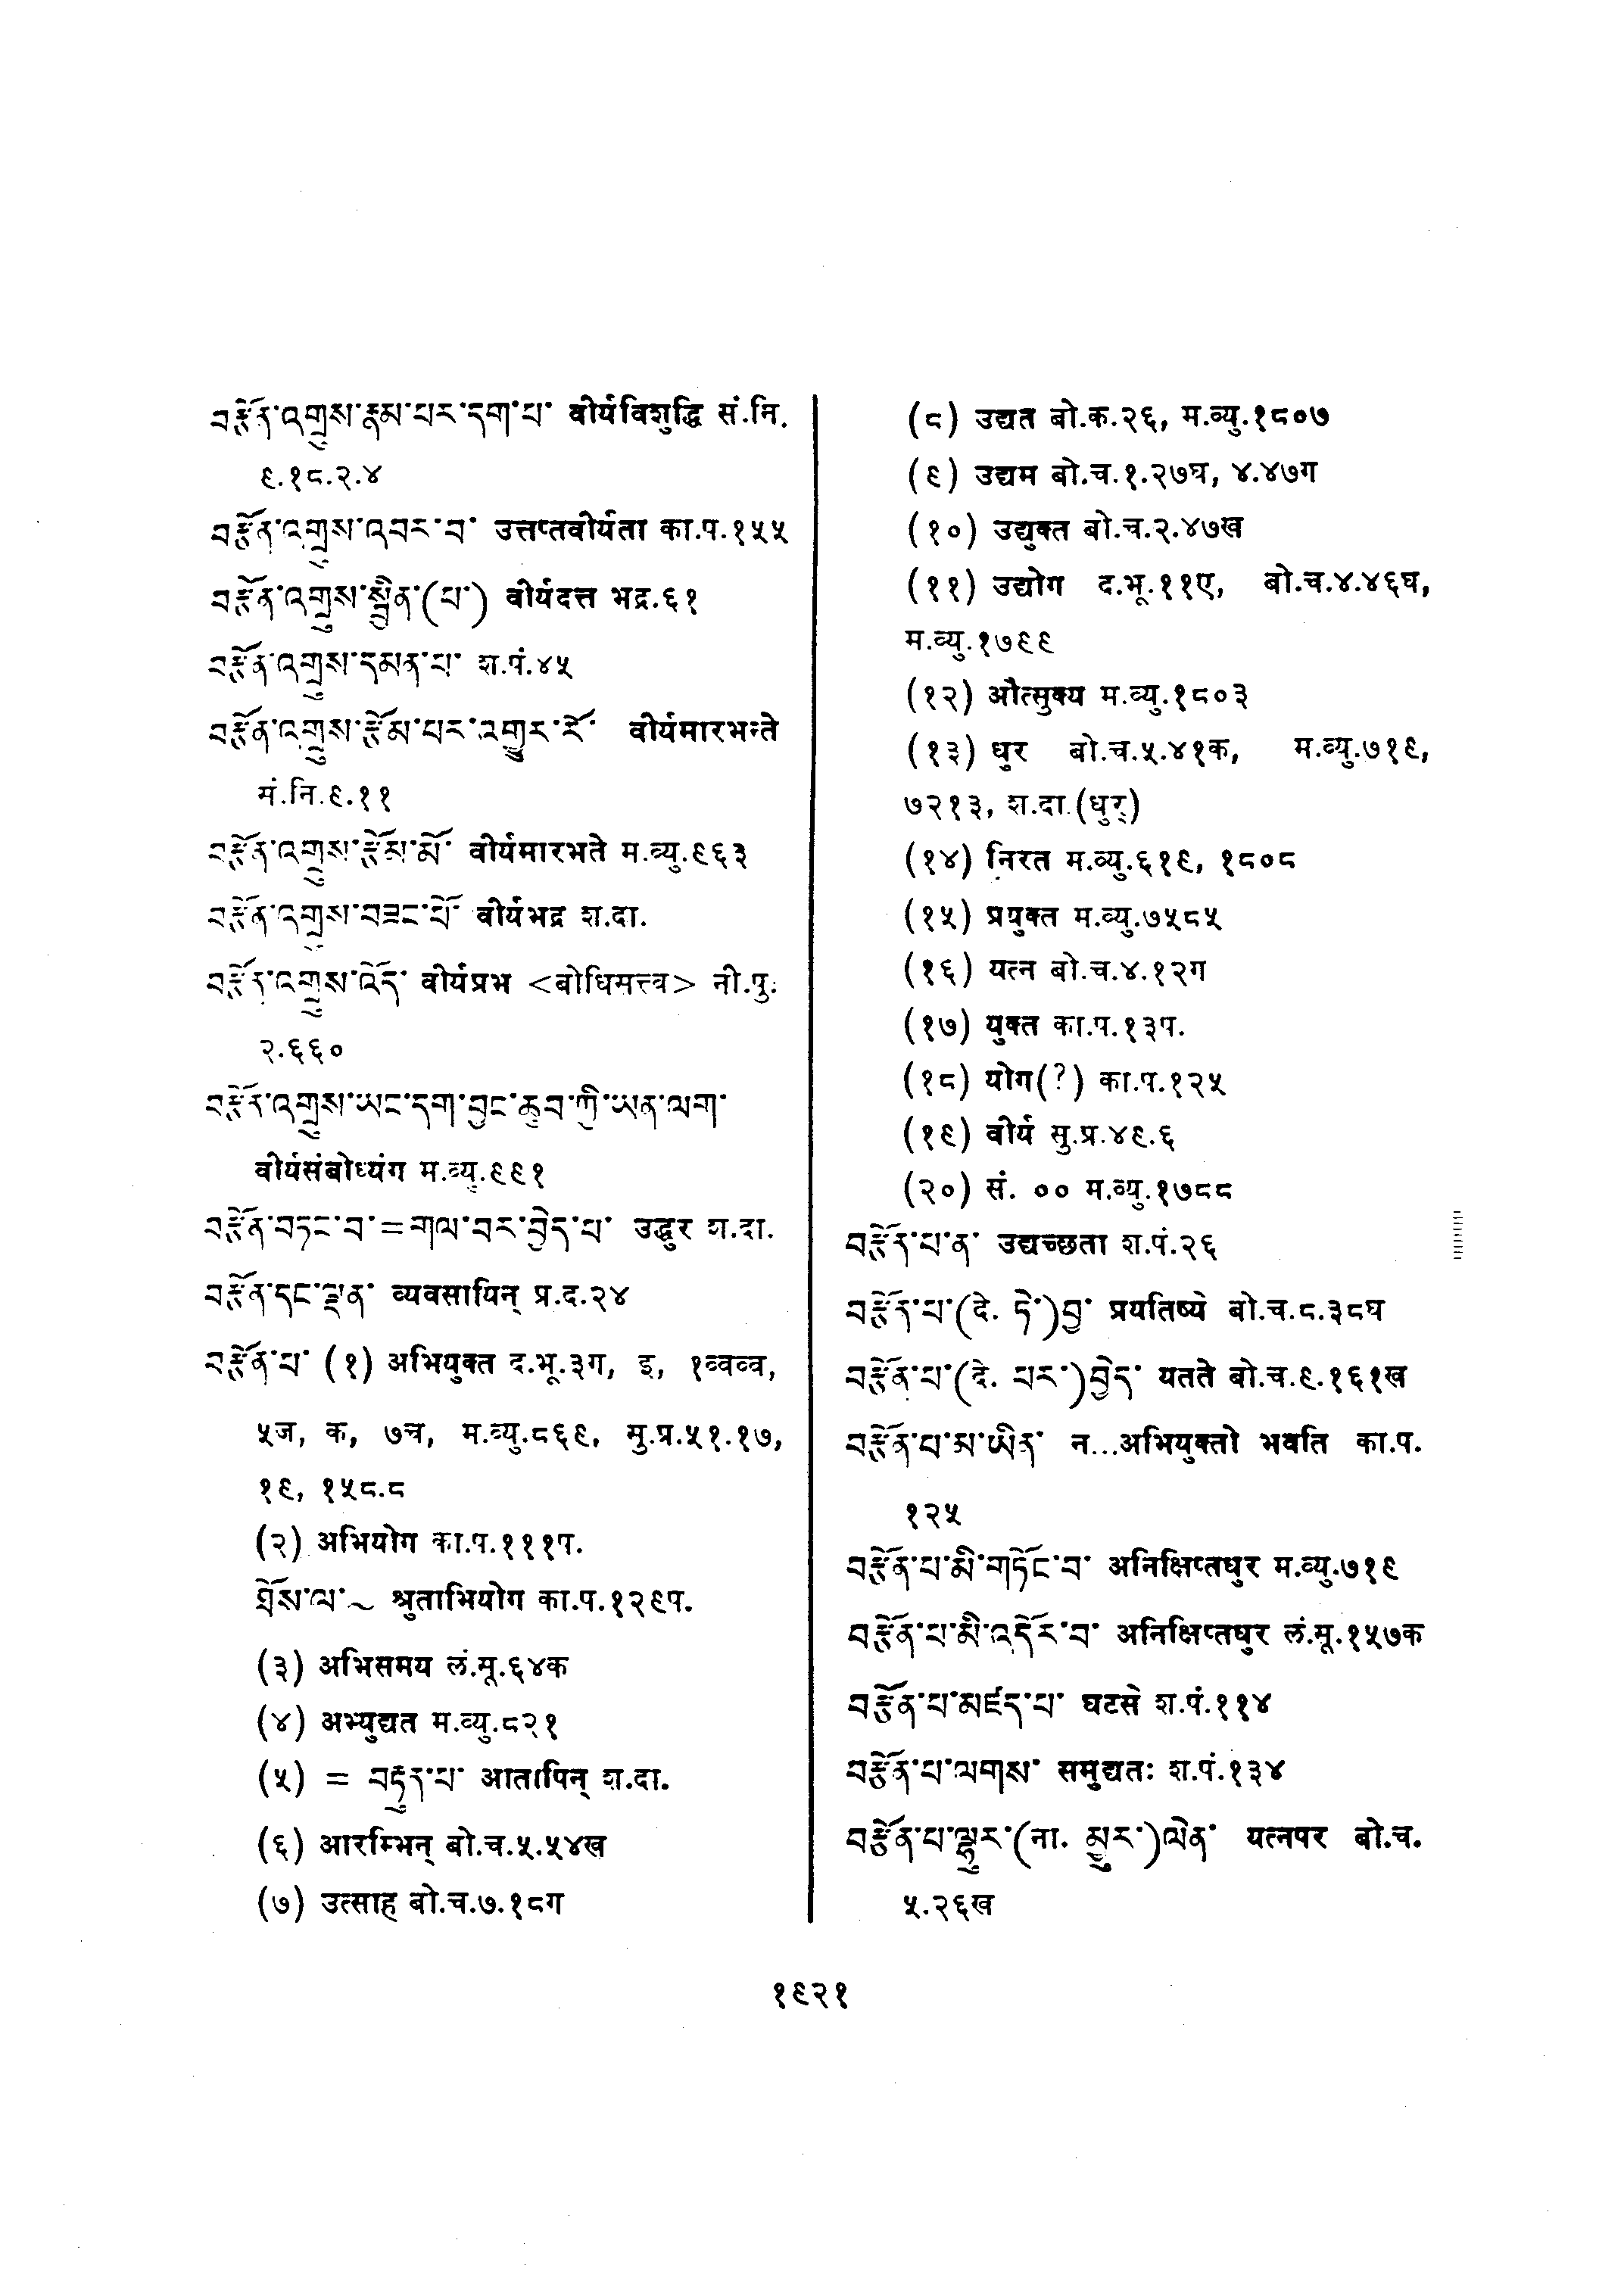 བརྩོན་འགྲུས་རྣམ་པར་དག་པ་ वीर्यविशुद्धि सं.नि.
९.१८.२.४
བརྩོན་འགྲུས་འབར་བ་ उत्तप्तवीर्यता का.प.१५५
བརྩོན་འགྲུས་སྦྱིན་(པ་) वीर्यदत्त भद्र.६१
བརྩོན་འགྲུས་དམན་པ་ श.पं.४५
བརྩོན་འགྲུས་རྩོམ་པར་འགྱུར་རོ་ वीर्यमारभन्ते
मं.नि.९.११
བརྩོན་འགྲུས་རྩོམ་མོ་ वीर्यमारभते म.व्यु.९६३
བརྩོན་འགྲུས་བཟང་པོ་ वीर्यभद्र श.दा.
བརྩོན་འགྲུས་འོད་ वीर्यप्रभ <बोधिसत्त्व> नी.पु.
२.६६०
བརྩོན་འགྲུས་ཡང་དག་བྱང་ཆུབ་ཀྱི་ཡན་ལག་
वीर्यसंबोध्यंग म.व्यु.९९१
བརྩོན་བཏང་བ་=གལ་བར་བྱེད་པ་ उद्धुर श.दा.
བརྩོན་དང་ལྡན་ व्यवसायिन् प्र.द.२४
བརྩོན་པ་ (१) अभियुक्त द.भू.३ग, इ, १व्वव्व,
५ज, क, ७च, म.व्यु.८६९, सु.प्र.५१.१७,
१९, १५८.८
(२) अभियोग का.प.१११प.
ཐོས་ལ་~ श्रुताभियोग का.प.१२९प.
(३) अभिसमय लं.मू.६४क
(४) अभ्युद्यत म.व्यु.८२१
(५) = བརྟུན་པ་ आतापिन् श.दा.
(६) आरम्भिन् बो.च.५.५४ख
(७) उत्साह बो.च.७.१८ग
(८) उद्यत बो.क.२६, म.व्यु.१८०७
(९) उद्यम बो.च.१.२७घ, ४.४७ग
(१०) उद्युक्त बो.च.२.४७ख
(११) उद्योग द.भू.११ए, बो.च.४.४६घ,
म.व्यु.१७९९
(१२) औत्सुक्य म.व्यु.१८०३
(१३) धुर बो.च.५.४१क, म.व्यु.७१९,
७२१३, श.दा.(धुर्)
(१४) निरत म.व्यु.६१९, १८०८
(१५) प्रयुक्त म.व्यु.७५८५
(१६) यत्न बो.च.४.१२ग
(१७) युक्त का.प.१३प.
(१८) योग(?) का.प.१२५
(१९) वीर्य सु.प्र.४९.६
(२०) सं. ०० म.व्यु.१७८८
བརྩོན་པ་ན་ उद्यच्छता श.पं.२६
བརྩོན་པ་(दे. ཏེ་)བྱ་ प्रयतिष्ये बो.च.८.३८घ
བརྩོན་པ་(दे. པར་)བྱེད་ यतते बो.च.९.१६१ख
བརྩོན་པ་མ་ཡིན་ न...अभियुक्तो भवति का.प.
१२५
བརྩོན་པ་མི་གཏོང་བ་ अनिक्षिप्तधुर म.व्यु.७१९
བརྩོན་པ་མི་འདོར་བ་ अनिक्षिप्तधुर लं.मू.१५७क
བརྩོན་པ་མཛད་པ་ घटसे श.पं.११४
བརྩོན་པ་ལགས་ समुद्यतः श.पं.१३४
བརྩོན་པ་ལྷུར་(ना. མྱུར་)ལེན་ यत्नपर बो.च.
५.२६ख
१९२१